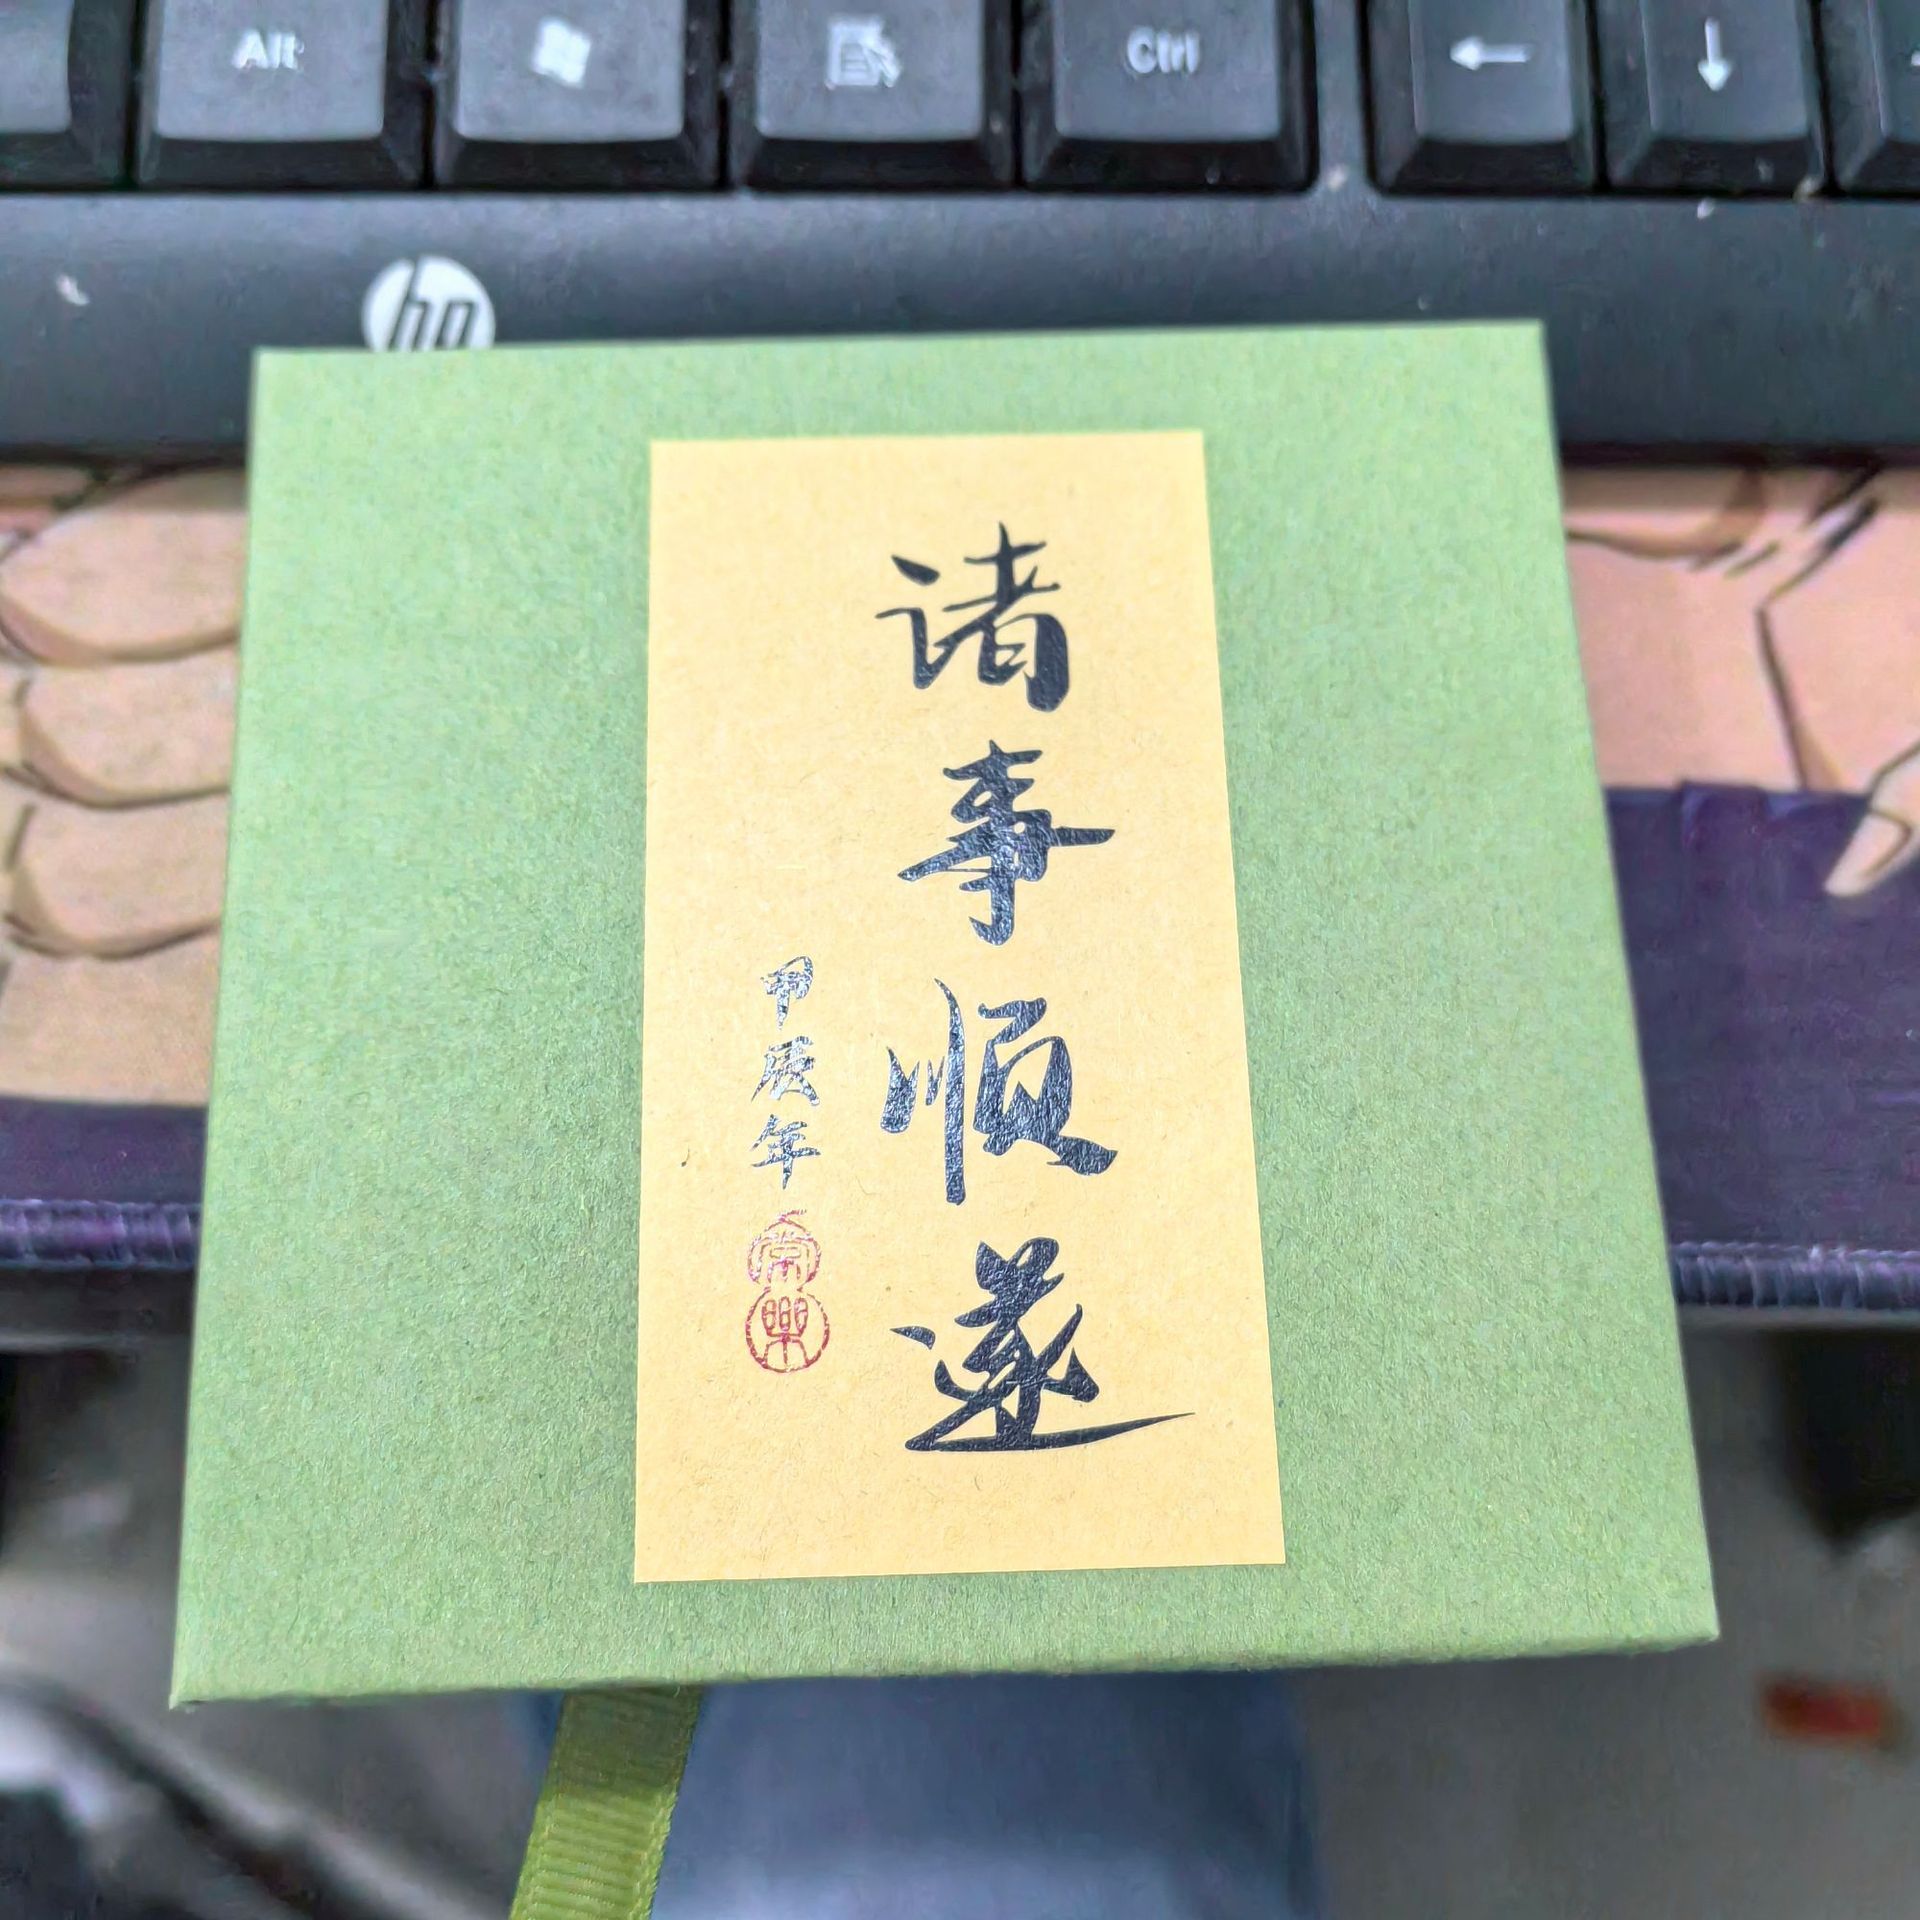 Alt
Ctrl
hp
诸事顺遂
甲辰年
常樂